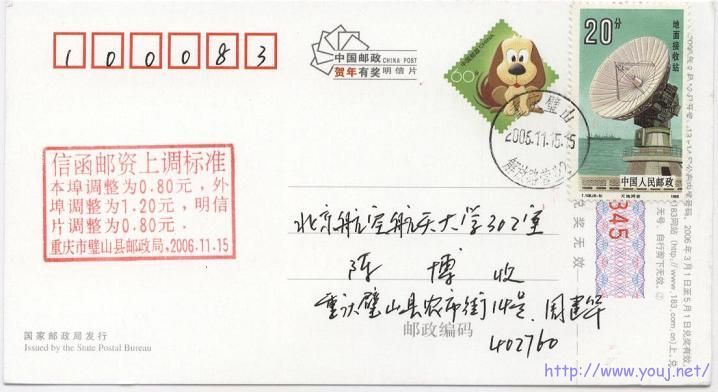 100083
中国邮政 CHINA POST
贺年有奖 明信片
60分
20分
地面接收站
中国人民邮政
璧山
2006.11.15.15
信函邮资上调标准
本埠调整为0.80元，外
埠调整为1.20元，明信
片调整为0.80元.
重庆市璧山县邮政局.2006.11.15
345
兑奖无效
北京航空航天大学302室
陈 博 收
重庆璧山县农市街14号 周建华
邮政编码
402760
国家邮政局发行
Issued by the State Postal Bureau
2006年3月1日至5月1日兑奖有效
http://www.youj.net/